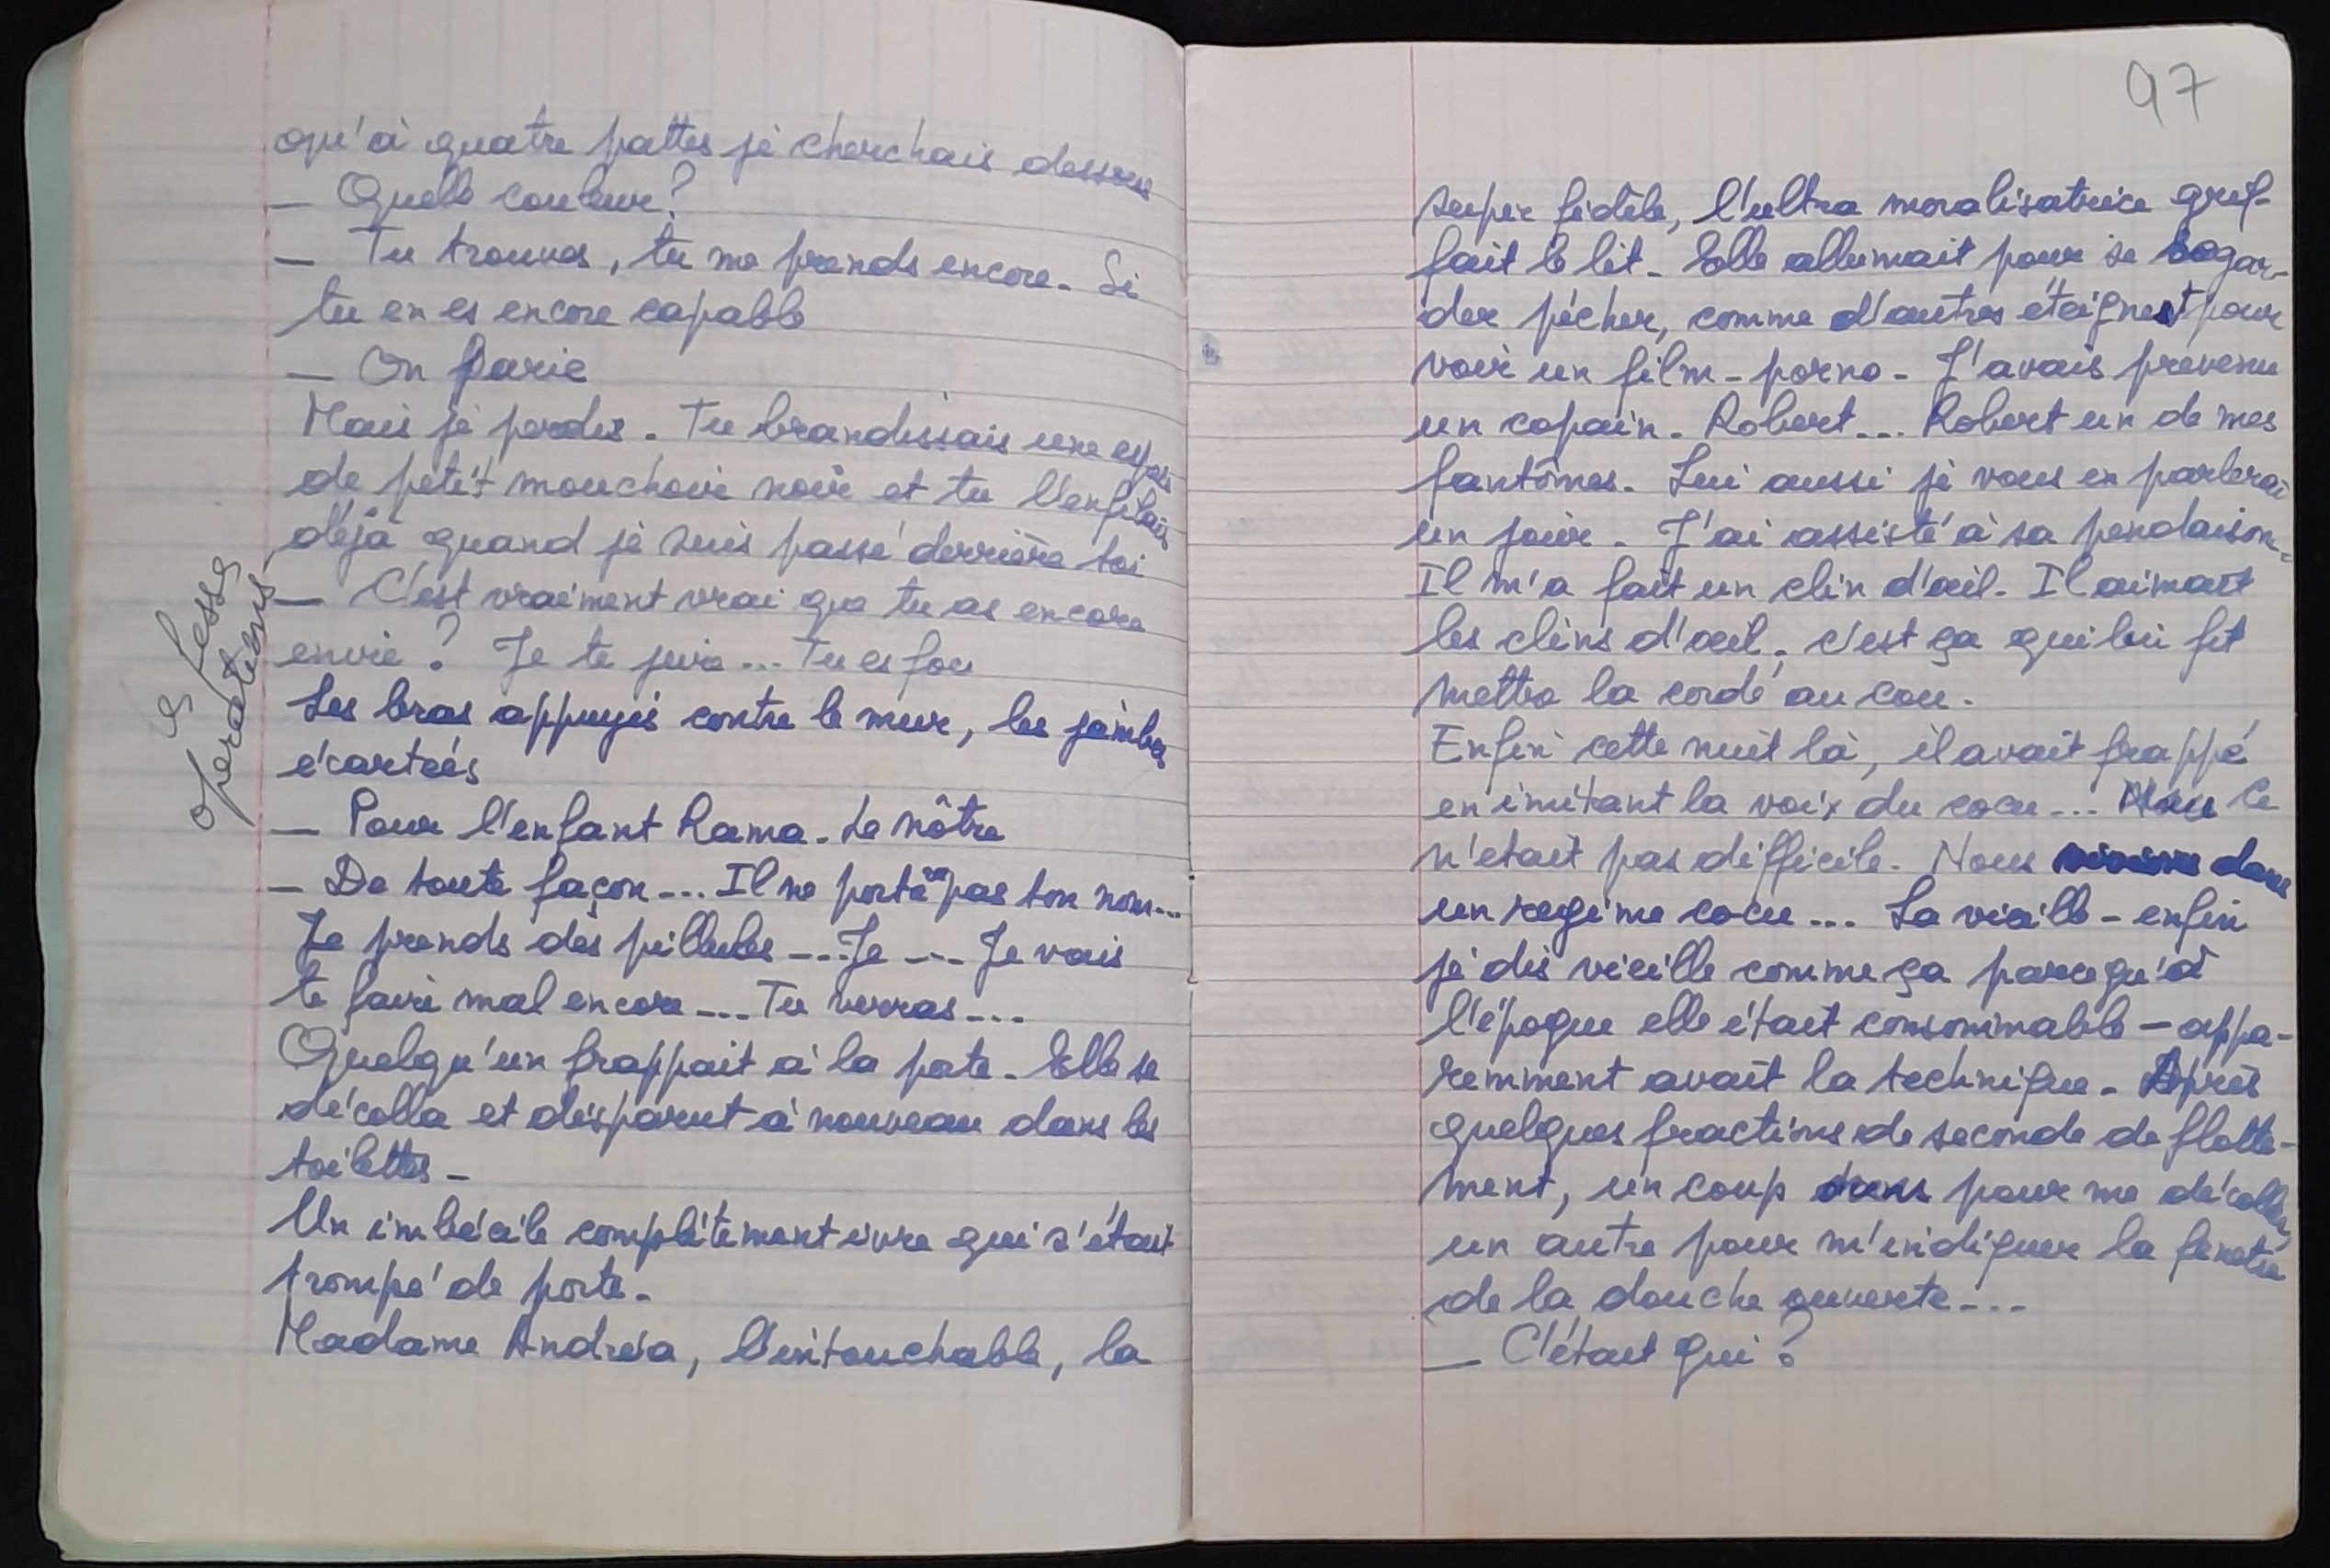 qu'à quatre pattes je cherchais dessous
— Quelle couleur?
— Tu trouves, tu me prends encore. Si
tu en es encore capable
— On parie
Mais je perdis. Tu brandissais une
de petit mouchoir noir et tu l'enfilais
déjà quand je suis passé derrière toi
— C'est vraiment vrai que tu as encore
envie? Je te jure... Tu es fou
Les bras appuyés contre le mur, les jambes
écartées
— Pour l'enfant Rama. Le nôtre
— De toute façon... Il ne portera pas ton nom...
Je prends des pillules ... Je ... Je vais
te faire mal encore... Tu verras...
Quelqu'un frappait à la porte. Elle se
décolla et disparut à nouveau dans les
toilettes -
Un imbécile complètement ivre qui s'était
trompé de porte.
Madame Andréa, l'intouchable, la
fesse
opérations
97
super fidèle, l'ultra moralisatrice gref-
fait le lit. Elle allumait pour se regar-
der pécher, comme d'autres éteignent pour
voir un film-porno. J'avais prévenu
un copain. Robert... Robert un de mes
fantômes. Lui aussi je vous en parlerai
un jour. J'ai assisté à sa pendaison.
Il m'a fait un clin d'œil. Il aimait
les clins d'œil, c'est ça qui lui fit
mettre la corde au cou.
Enfin cette nuit là, il avait frappé
en imitant la voix du cocu... Ce
n'était pas difficile. Nous vivions dans
un régime cocu... La vieille - enfin
je dis vieille comme ça parce qu'à
l'époque elle était consommable — appa-
remment avait la technique. Après
quelques fractions de seconde de flotte-
ment, un coup pour me décoller
un autre pour m'indiquer la fenêtre
de la douche ouverte...
— C'était qui?